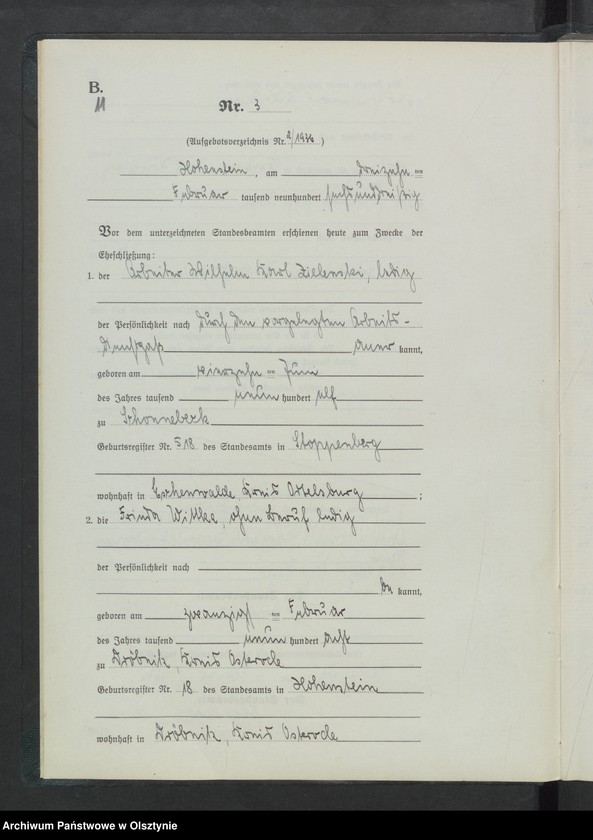 B.
11
Nr. 3
(Aufgebotsverzeichnis Nr. 2/1936)
Hohenstein, am dreizehn ten
Februar tausend neunhundert sechsunddreißig
Vor dem unterzeichneten Standesbeamten erschienen heute zum Zwecke der
Eheschließung:
1. der Arbeiter Wilhelm Karl Zielenski, ledig
der Persönlichkeit nach durch den vorgelegten Arbeits-
dienstpaß aner kannt,
geboren am vierzehn ten Juni
des Jahres tausend neun hundert elf
zu Schonnebeck
Geburtsregister Nr. 518 des Standesamts in Stoppenberg
wohnhaft in Eschenwalde, Kreis Ortelsburg ;
2. die Frieda Wittke, ohne Beruf ledig
der Persönlichkeit nach
be kannt,
geboren am zwanzigs ten Februar
des Jahres tausend neun hundert acht
zu Dröbnitz, Kreis Osterode
Geburtsregister Nr. 18 des Standesamts in Hohenstein
wohnhaft in Dröbnitz, Kreis Osterode
Archiwum Państwowe w Olsztynie